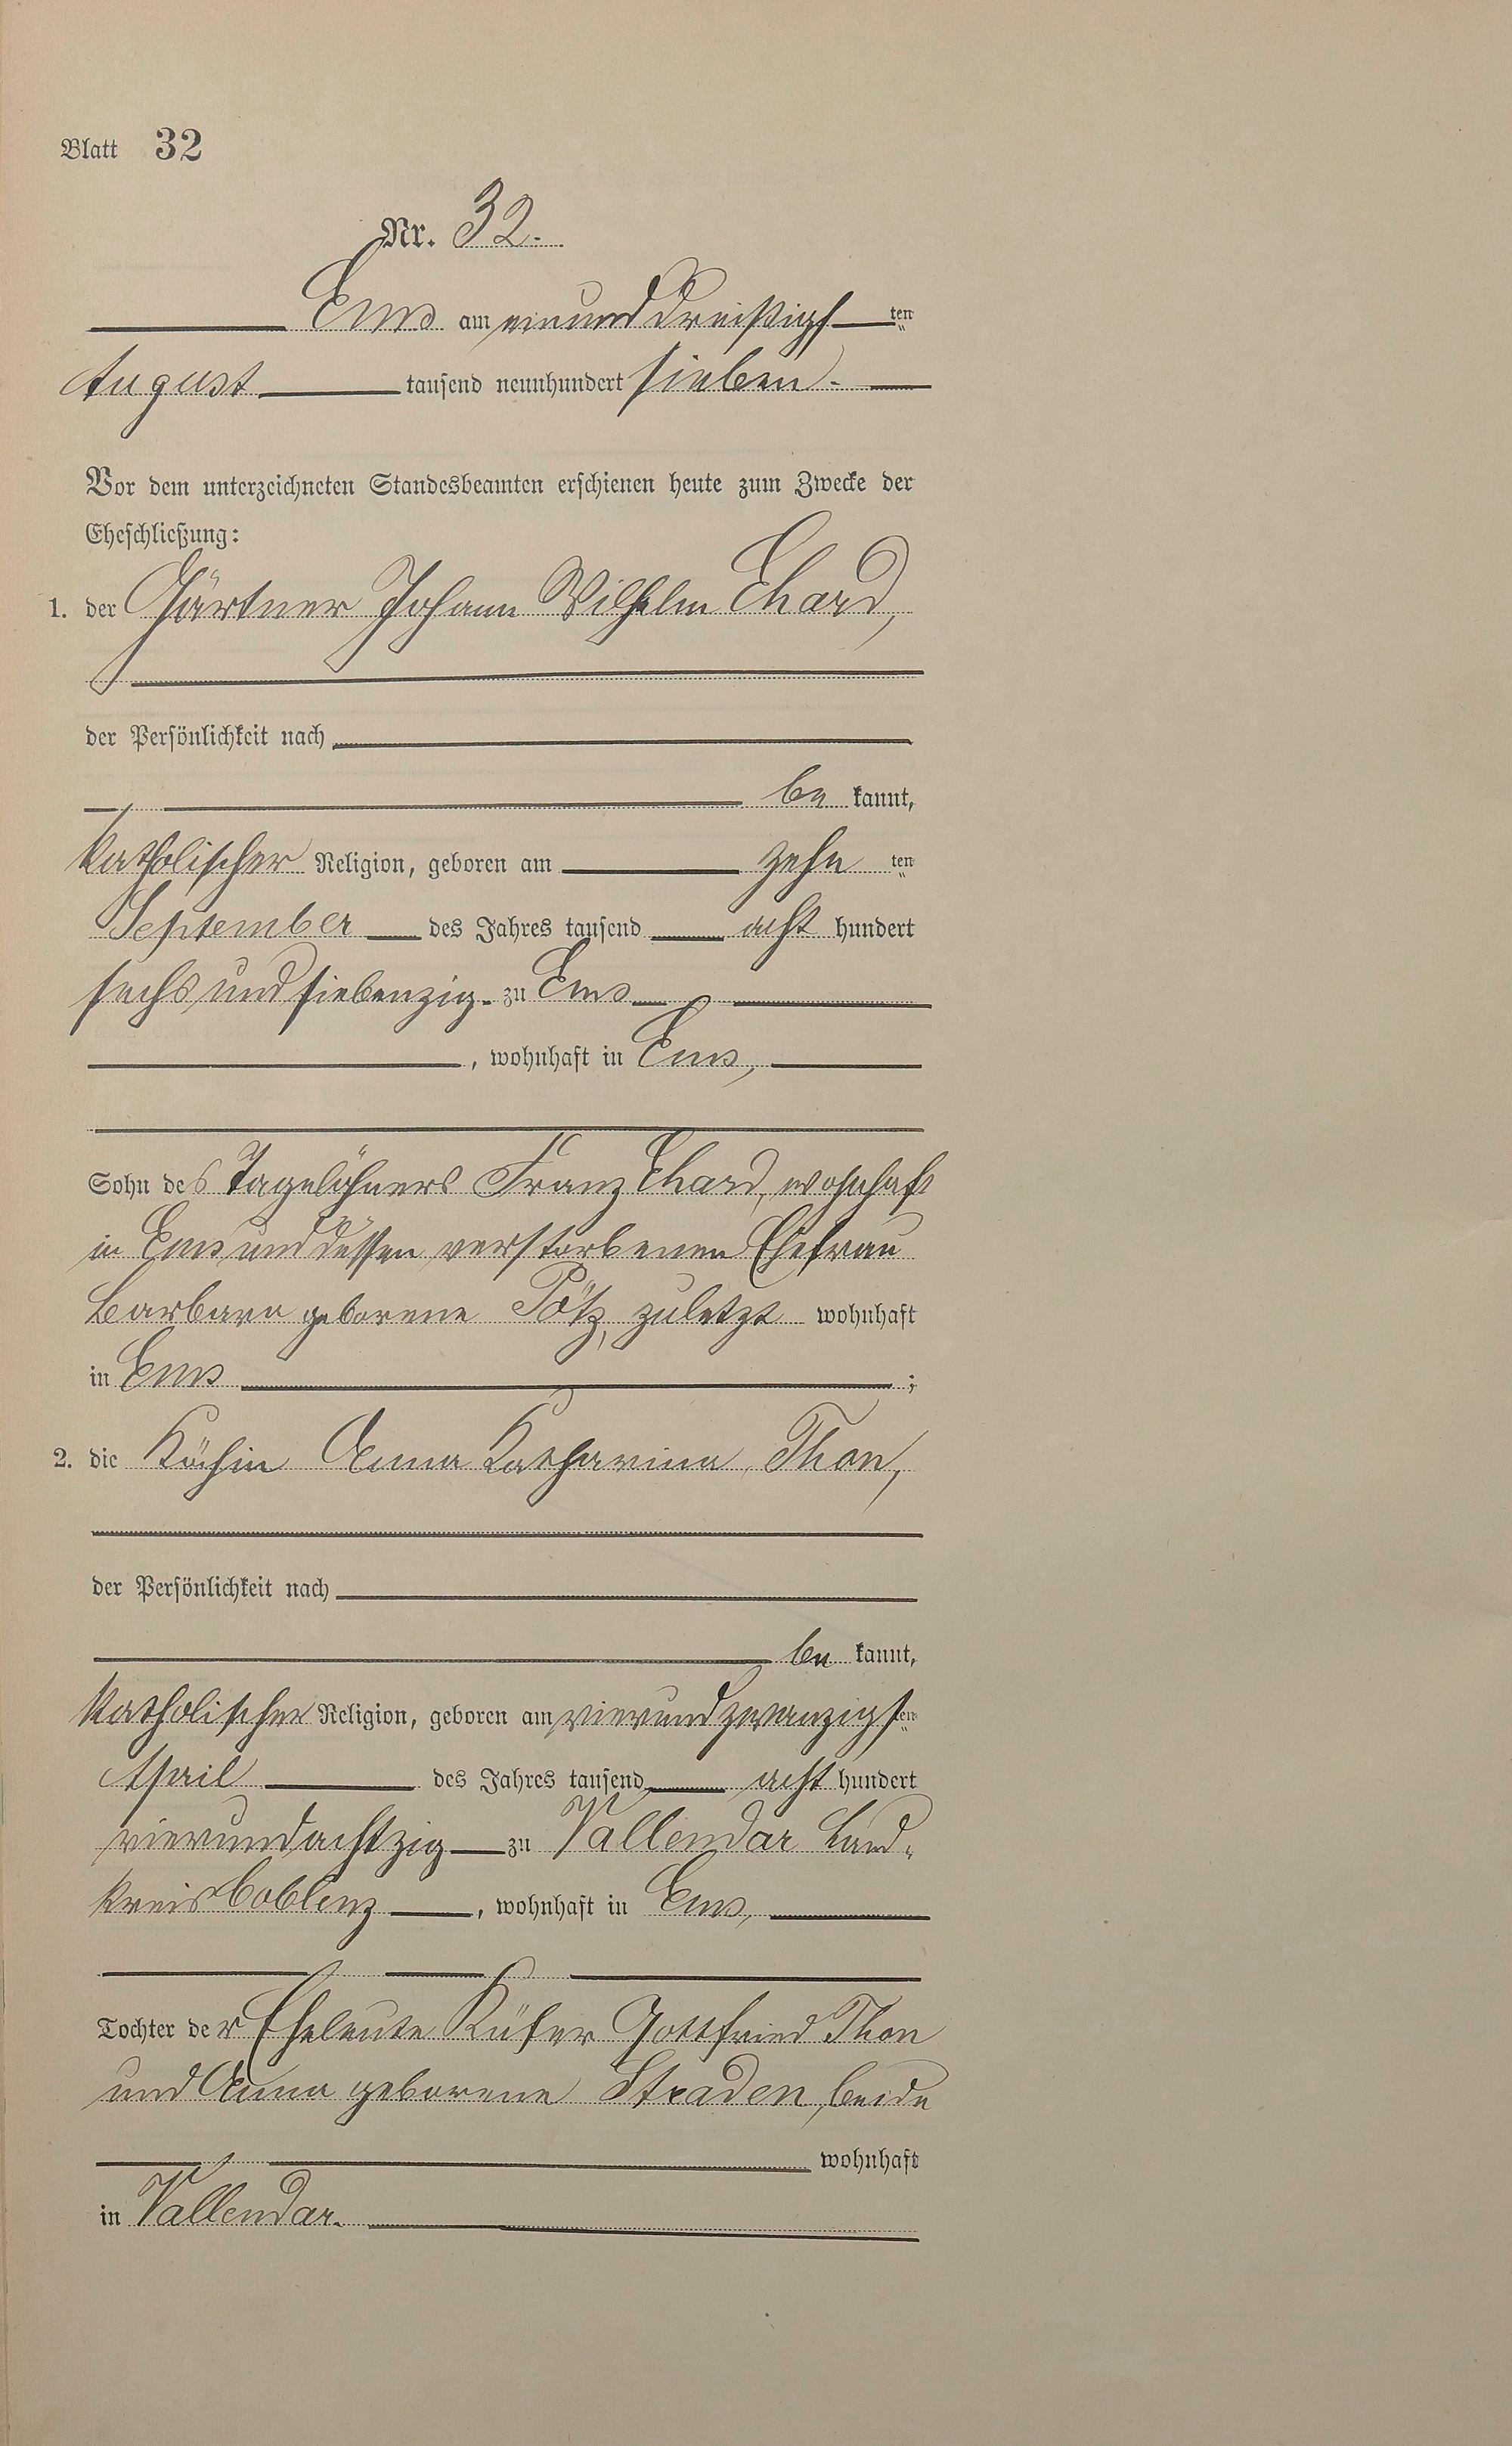 Blatt 32
Nr. 32.
Ems am einunddreißigs ten
August tausend neunhundert sieben.
Vor dem unterzeichneten Standesbeamten erschienen heute zum Zwecke der
Eheschließung:
1. der Gärtner Johann Wilhelm Ehard,
der Persönlichkeit nach
be kannt,
katholischer Religion, geboren am zehn ten
September des Jahres tausend acht hundert
sechs und siebenzig. zu Ems
, wohnhaft in Ems,
Sohn des Tagelöhners Franz Ehard, wohnhaft
in Ems und dessen verstorbenen Ehefrau
Barbara geborene Pötz, zuletzt wohnhaft
in Ems ;
2. die Köchin Anna Katharina Thon,
der Persönlichkeit nach
be kannt,
katholischer Religion, geboren am vierundzwanzigs ten
April des Jahres tausend acht hundert
vierundachtzig zu Vallendar Land-
kreis Coblenz , wohnhaft in Ems,
Tochter der Eheleute Küfer Gottfried Thon
und Anna geborene Straden, beide
wohnhaft
in Vallendar.